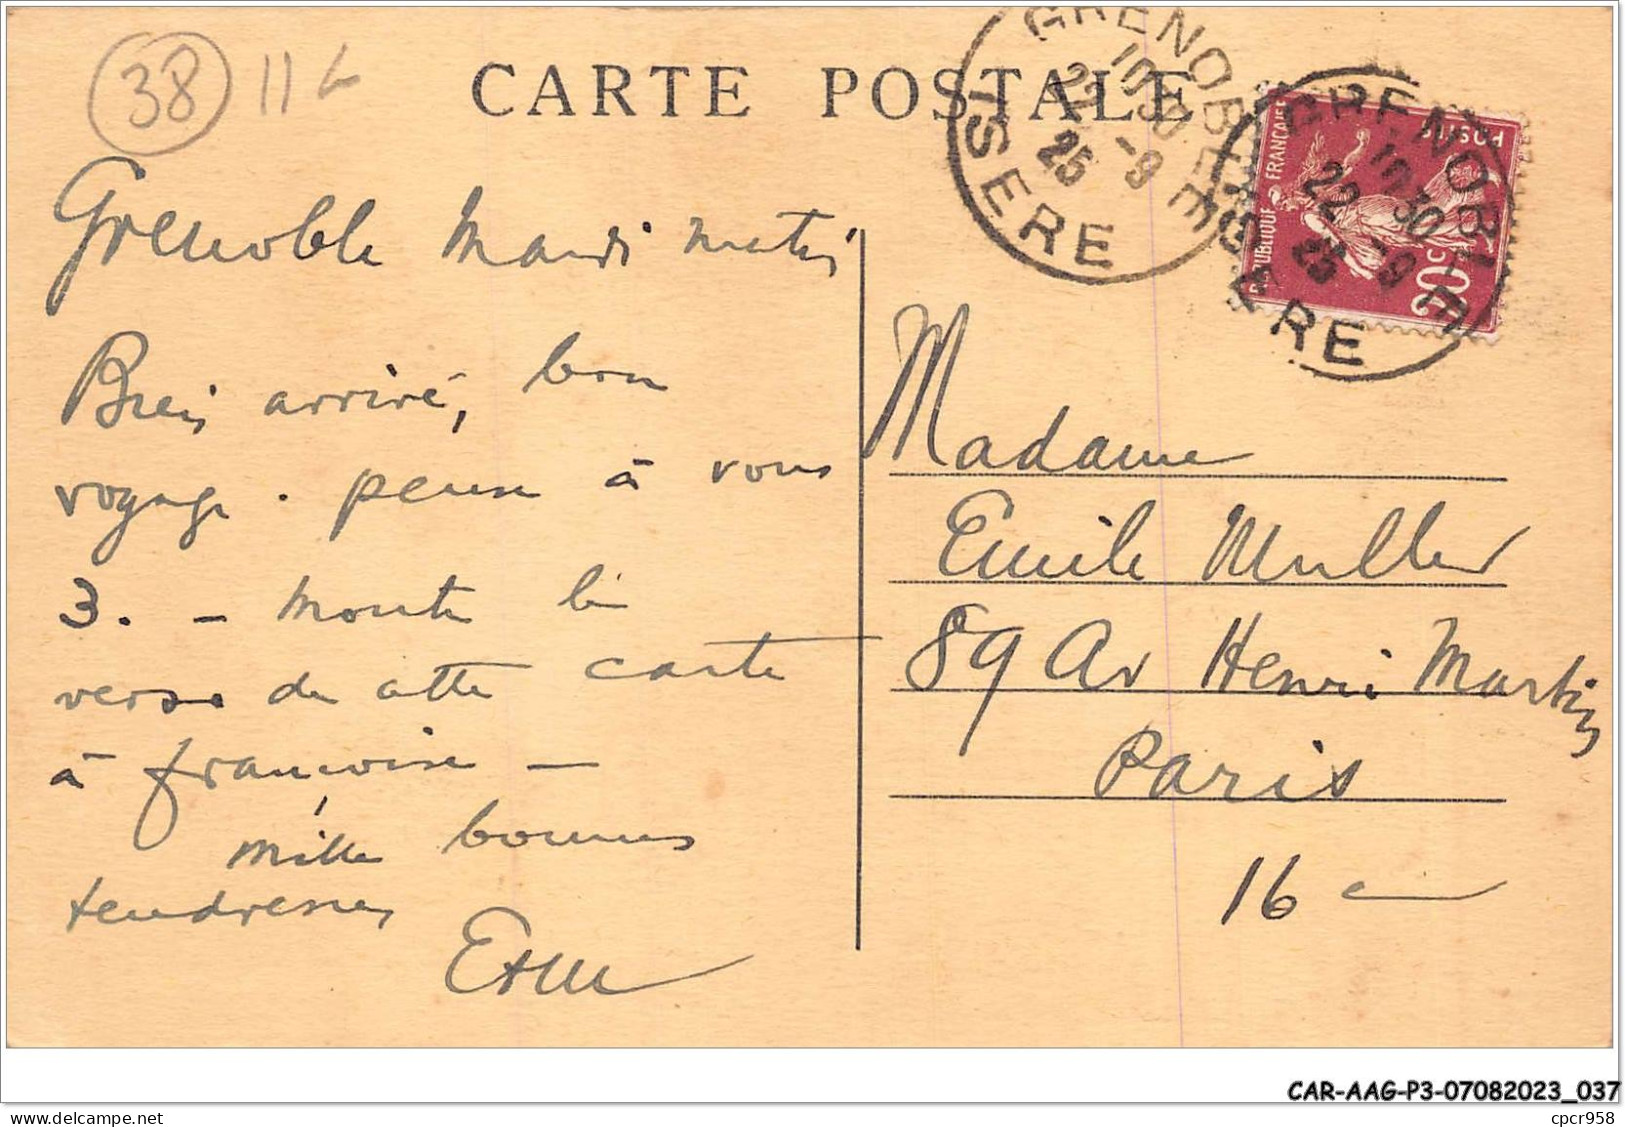 38 11
CARTE POSTALE
GRENOBLE
10 30
22 -9
25
ISERE
GRENOBLE
10 30
22 -9
25
ISERE
REPUBLIQUE FRANCAISE
POSTES
20c
Grenoble Mardi matin
Bien arrivé, bon
voyage. pense à vous
3. - Montre le
verso de cette carte
à françoise -
mille bonnes
tendresses
Madame
Emile Muller
89 Av Henri Martin
Paris
16e
CAR-AAG-P3-07082023_037
www.delcampe.net
cpcr958